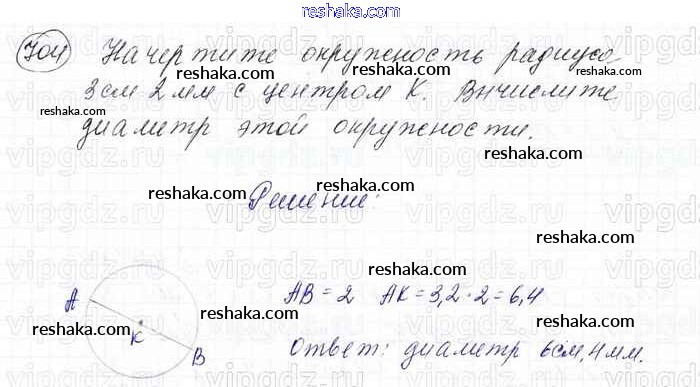 reshaka.com
704 Начертите окружность радиуса
3см 2мм с центром К. Вычислите
диаметр этой окружности.
Решение:
A
K
B
AB = 2 AK = 3,2 · 2 = 6,4
Ответ: диаметр 6см,4мм.
reshaka.com
reshaka.com
reshaka.com
reshaka.com
reshaka.com
reshaka.com
reshaka.com
reshaka.com
reshaka.com
reshaka.com
reshaka.com
reshaka.com
vipgdz.ru